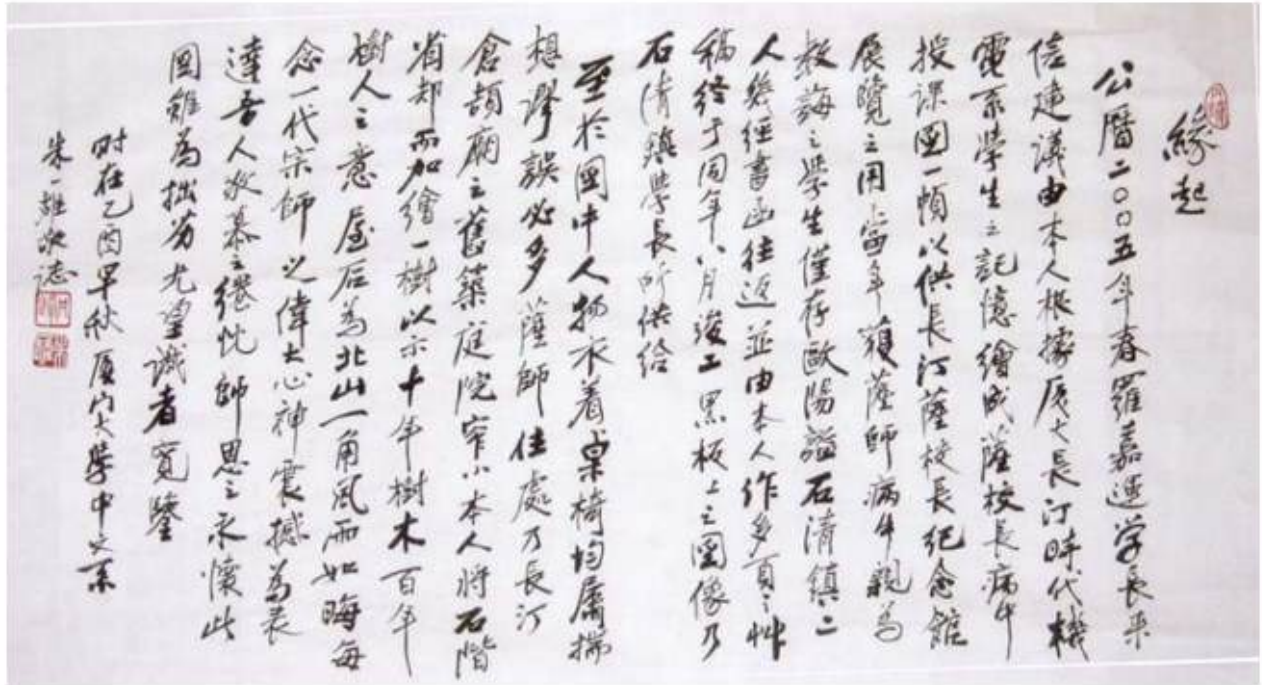 緣起
公曆二〇〇五年春羅嘉運学長来
信建議由本人根據厦大長汀時代機
電系學生之記憶繪成薩校長病中
授課圖一幀以供長汀薩校長紀念館
展覽之用當年獲薩師病中親為
教誨之學生僅存歐陽謐石清鎮二
人幾經書函往返並由本人作多頁之艸
稿終于同年八月竣工黑板上之圖像乃
石清鎮學長所供給
至於圖中人物衣着桌椅均屬揣
想謬誤必多薩師住處乃長汀
倉頡廟之舊築庭院窄小本人將石階
省却而加繪一樹以示十年樹木百年
樹人之意屋后為北山一角風雨如晦每
念一代宗師之偉大心神震撼為表
達吾人敬慕之眷忱師恩之永懷此
圖雖為拙劣尤望識者寬鑒
时在乙酉早秋厦门大學中文系
朱一雄敬誌